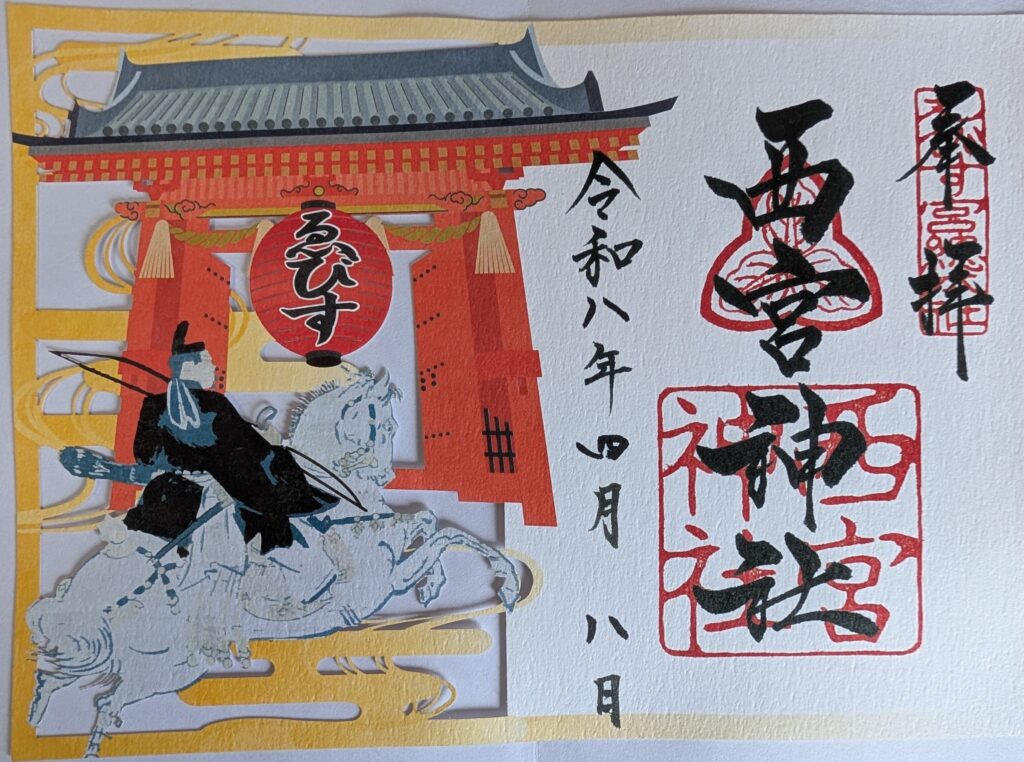 奉拝
西宮神社
西宮
神社
令和八年四月八日
ゑびす